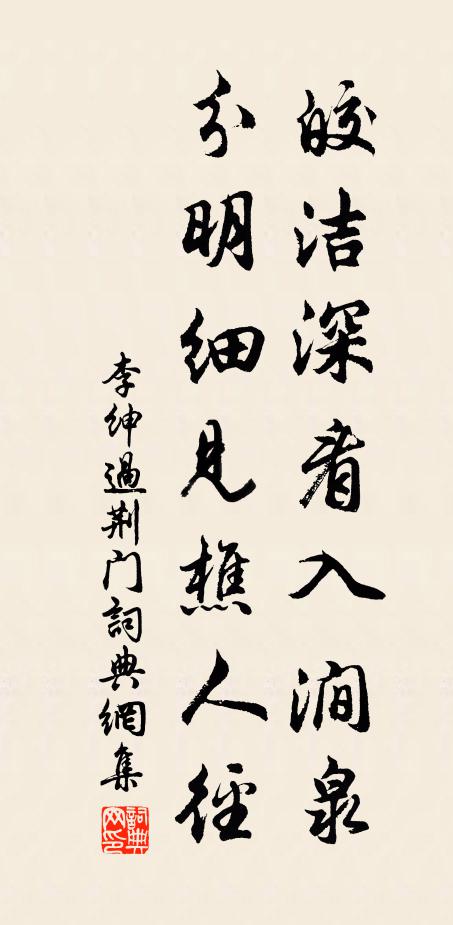 皎洁深看入涧泉
分明细见樵人径
李绅過荆门詞典網集
詞典網印